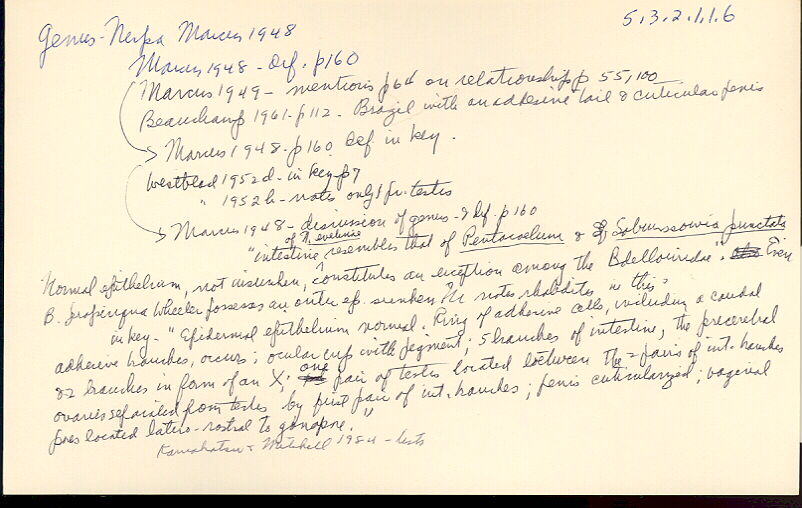 5.3.2.1.1.6
Genus - Nerpa Marcus 1948
Marcus 1948 - Def. p160
Marcus 1949 - mentions p64 on relationship p 55, 100
Beauchamp 1961 - p112 - Brazil with an adhesive tail & cuticular penis
Marcus 1948 - p160 Def in key.
Westblad 1952d - in key p7
" 1952b - notes only 1 pr. testis
Marcus 1948 - discussion of genus - & def. p160
of N. evelinae
"intestine resembles that of Pentacoelum & of Sabussowia punctata
Normal epithelium, not insunken, constitutes an exception among the Bdellouridae." Even
B. propinqua Wheeler possesses an outer ep. sunken. He notes rhabdites in this
in key - "Epidermal epithelium normal. Ring of adhesive cells, including a caudal
adhesive branches, occurs; ocular cup with pigment; 5 branches of intestine, the precerebral
or 2 branches in form of an X; one pair of testes located between the 2 pairs of int. branches
ovaries separated from testes by first pair of int. branches; penis cuticularized; vaginal
pores located latero-rostral to gonopore."
Kawakatsu & Mitchell 1984 - lists